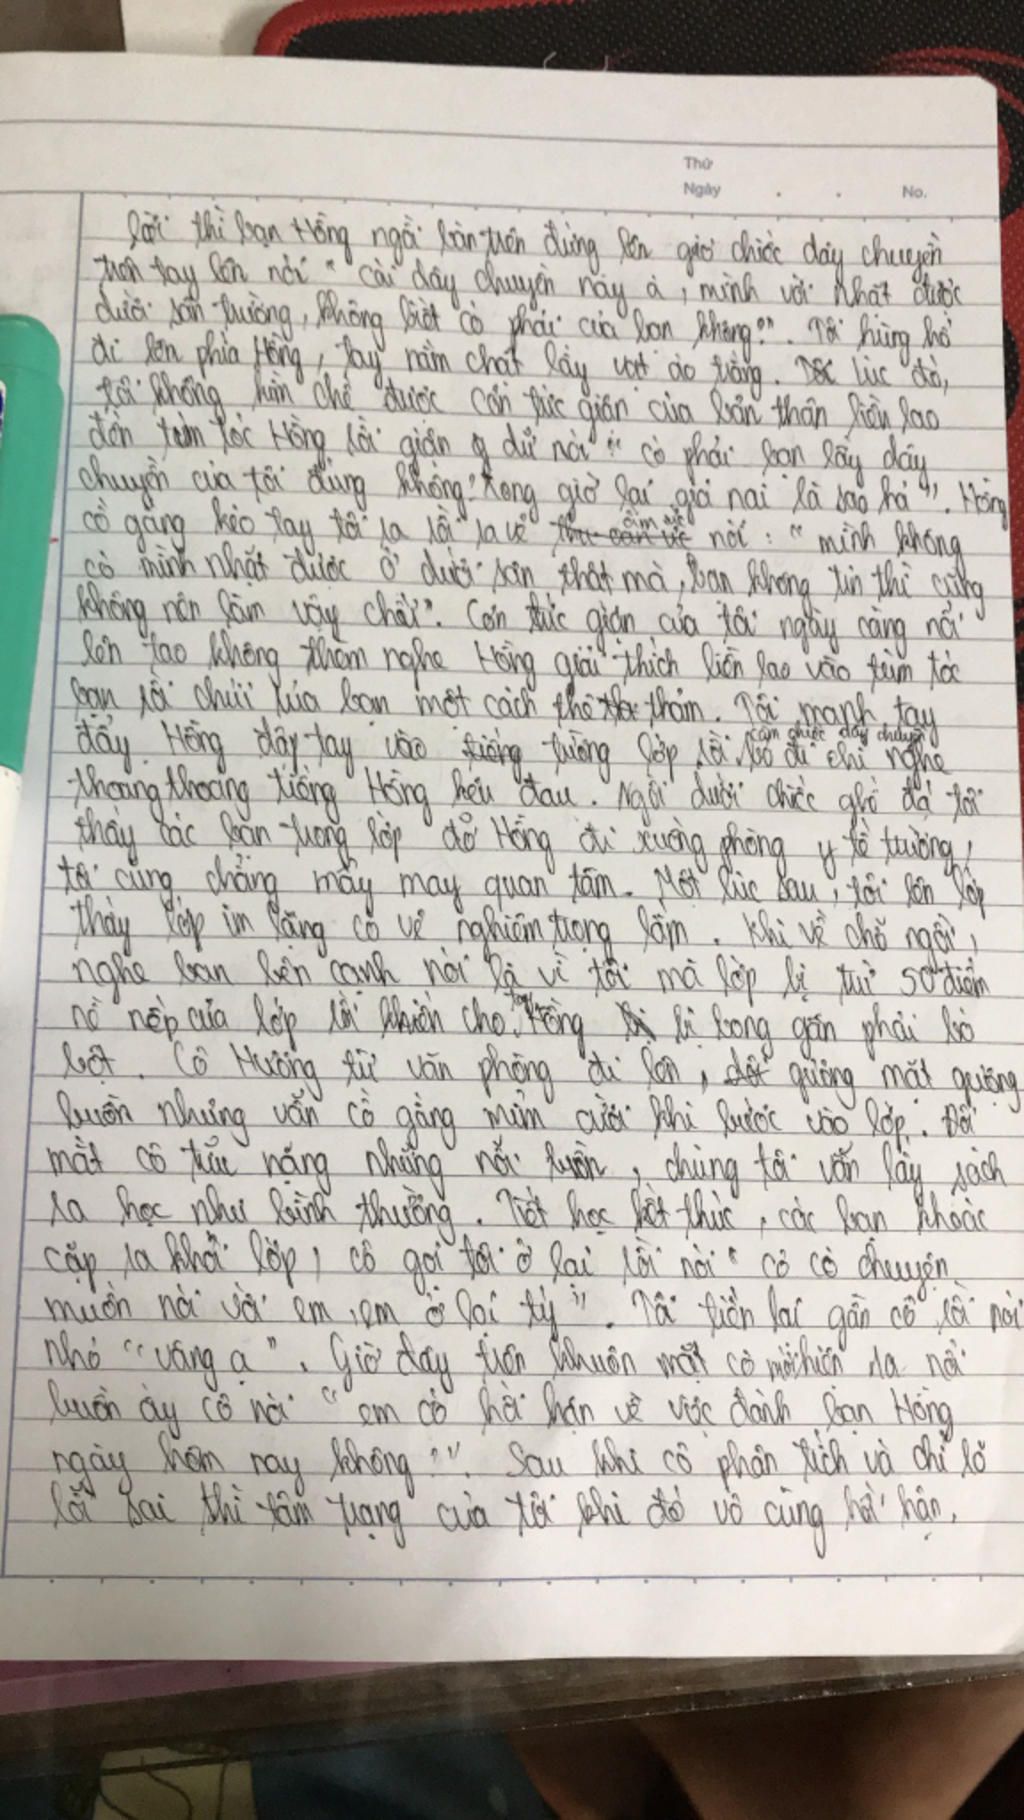 Thứ
Ngày . . No.
lời thì bạn Hồng ngồi bàn trên đứng lên giơ chiếc dây chuyền
trên tay lên nói " cái dây chuyền này à, mình vời nhặt được
dưới sân trường, không biết có phải của bạn không?". Tôi hùng hổ
đi lên phía Hồng, tay nắm chặt lấy vạt áo trắng. lúc đó,
tôi không kìm chế được cơn tức giận của bản thân liền lao
đến túm tóc Hồng rồi giận dữ nói " có phải bạn lấy dây
chuyền của tôi đúng không? xong giờ lại giả nai là sao hả". Hồng
cố gắng kéo tay tôi ra rồi ra vẻ ấm ức nói : " mình không
có mình nhặt được ở dưới sân thật mà, bạn không tin thì cũng
không nên làm vậy chứ". Cơn tức giận của tôi ngày càng nổi
lên tao không thèm nghe Hồng giải thích liền lao vào túm tóc
bạn rồi chửi rủa bạn một cách thô thảm. Tôi mạnh tay
đẩy Hồng đập tay vào tường lớp rồi cầm chiếc dây chuyền bỏ đi chỉ nghe
thoang thoang tiếng Hồng kêu đau. Ngồi dưới chiếc ghế đá tôi
thấy các bạn trong lớp đỡ Hồng đi xuống phòng y tế trường,
tôi cũng chẳng mảy may quan tâm. Một lúc sau, tôi lên lớp
thấy lớp im lặng có vẻ nghiêm trọng lắm. Khi về chỗ ngồi,
nghe bạn bên cạnh nói là vì tôi mà lớp bị trừ 50 điểm
nề nếp của lớp rồi khiến cho tay Hồng bị bong gân phải bó
bột. Cô Hương từ văn phòng đi lên, gương mặt gượng
buồn nhưng vẫn cố gắng mỉm cười khi bước vào lớp. Đôi
mắt cô trĩu nặng những nỗi buồn, chúng tôi vẫn lấy sách
ra học như bình thường. Tiết học kết thúc, các bạn khoác
cặp ra khỏi lớp, cô gọi tôi ở lại rồi nói " cô có chuyện
muốn nói với em, em ở lại tý ". Tôi tiến lại gần cô rồi nói
nhỏ " vâng ạ ". Giờ đây trên khuôn mặt cô mới hiện ra nỗi
buồn ấy cô nói " em có hối hận về việc đánh bạn Hồng
ngày hôm nay không ?". Sau khi cô phân tích và chỉ rõ
lỗi sai thì tâm trạng của tôi khi đó vô cùng hối hận,